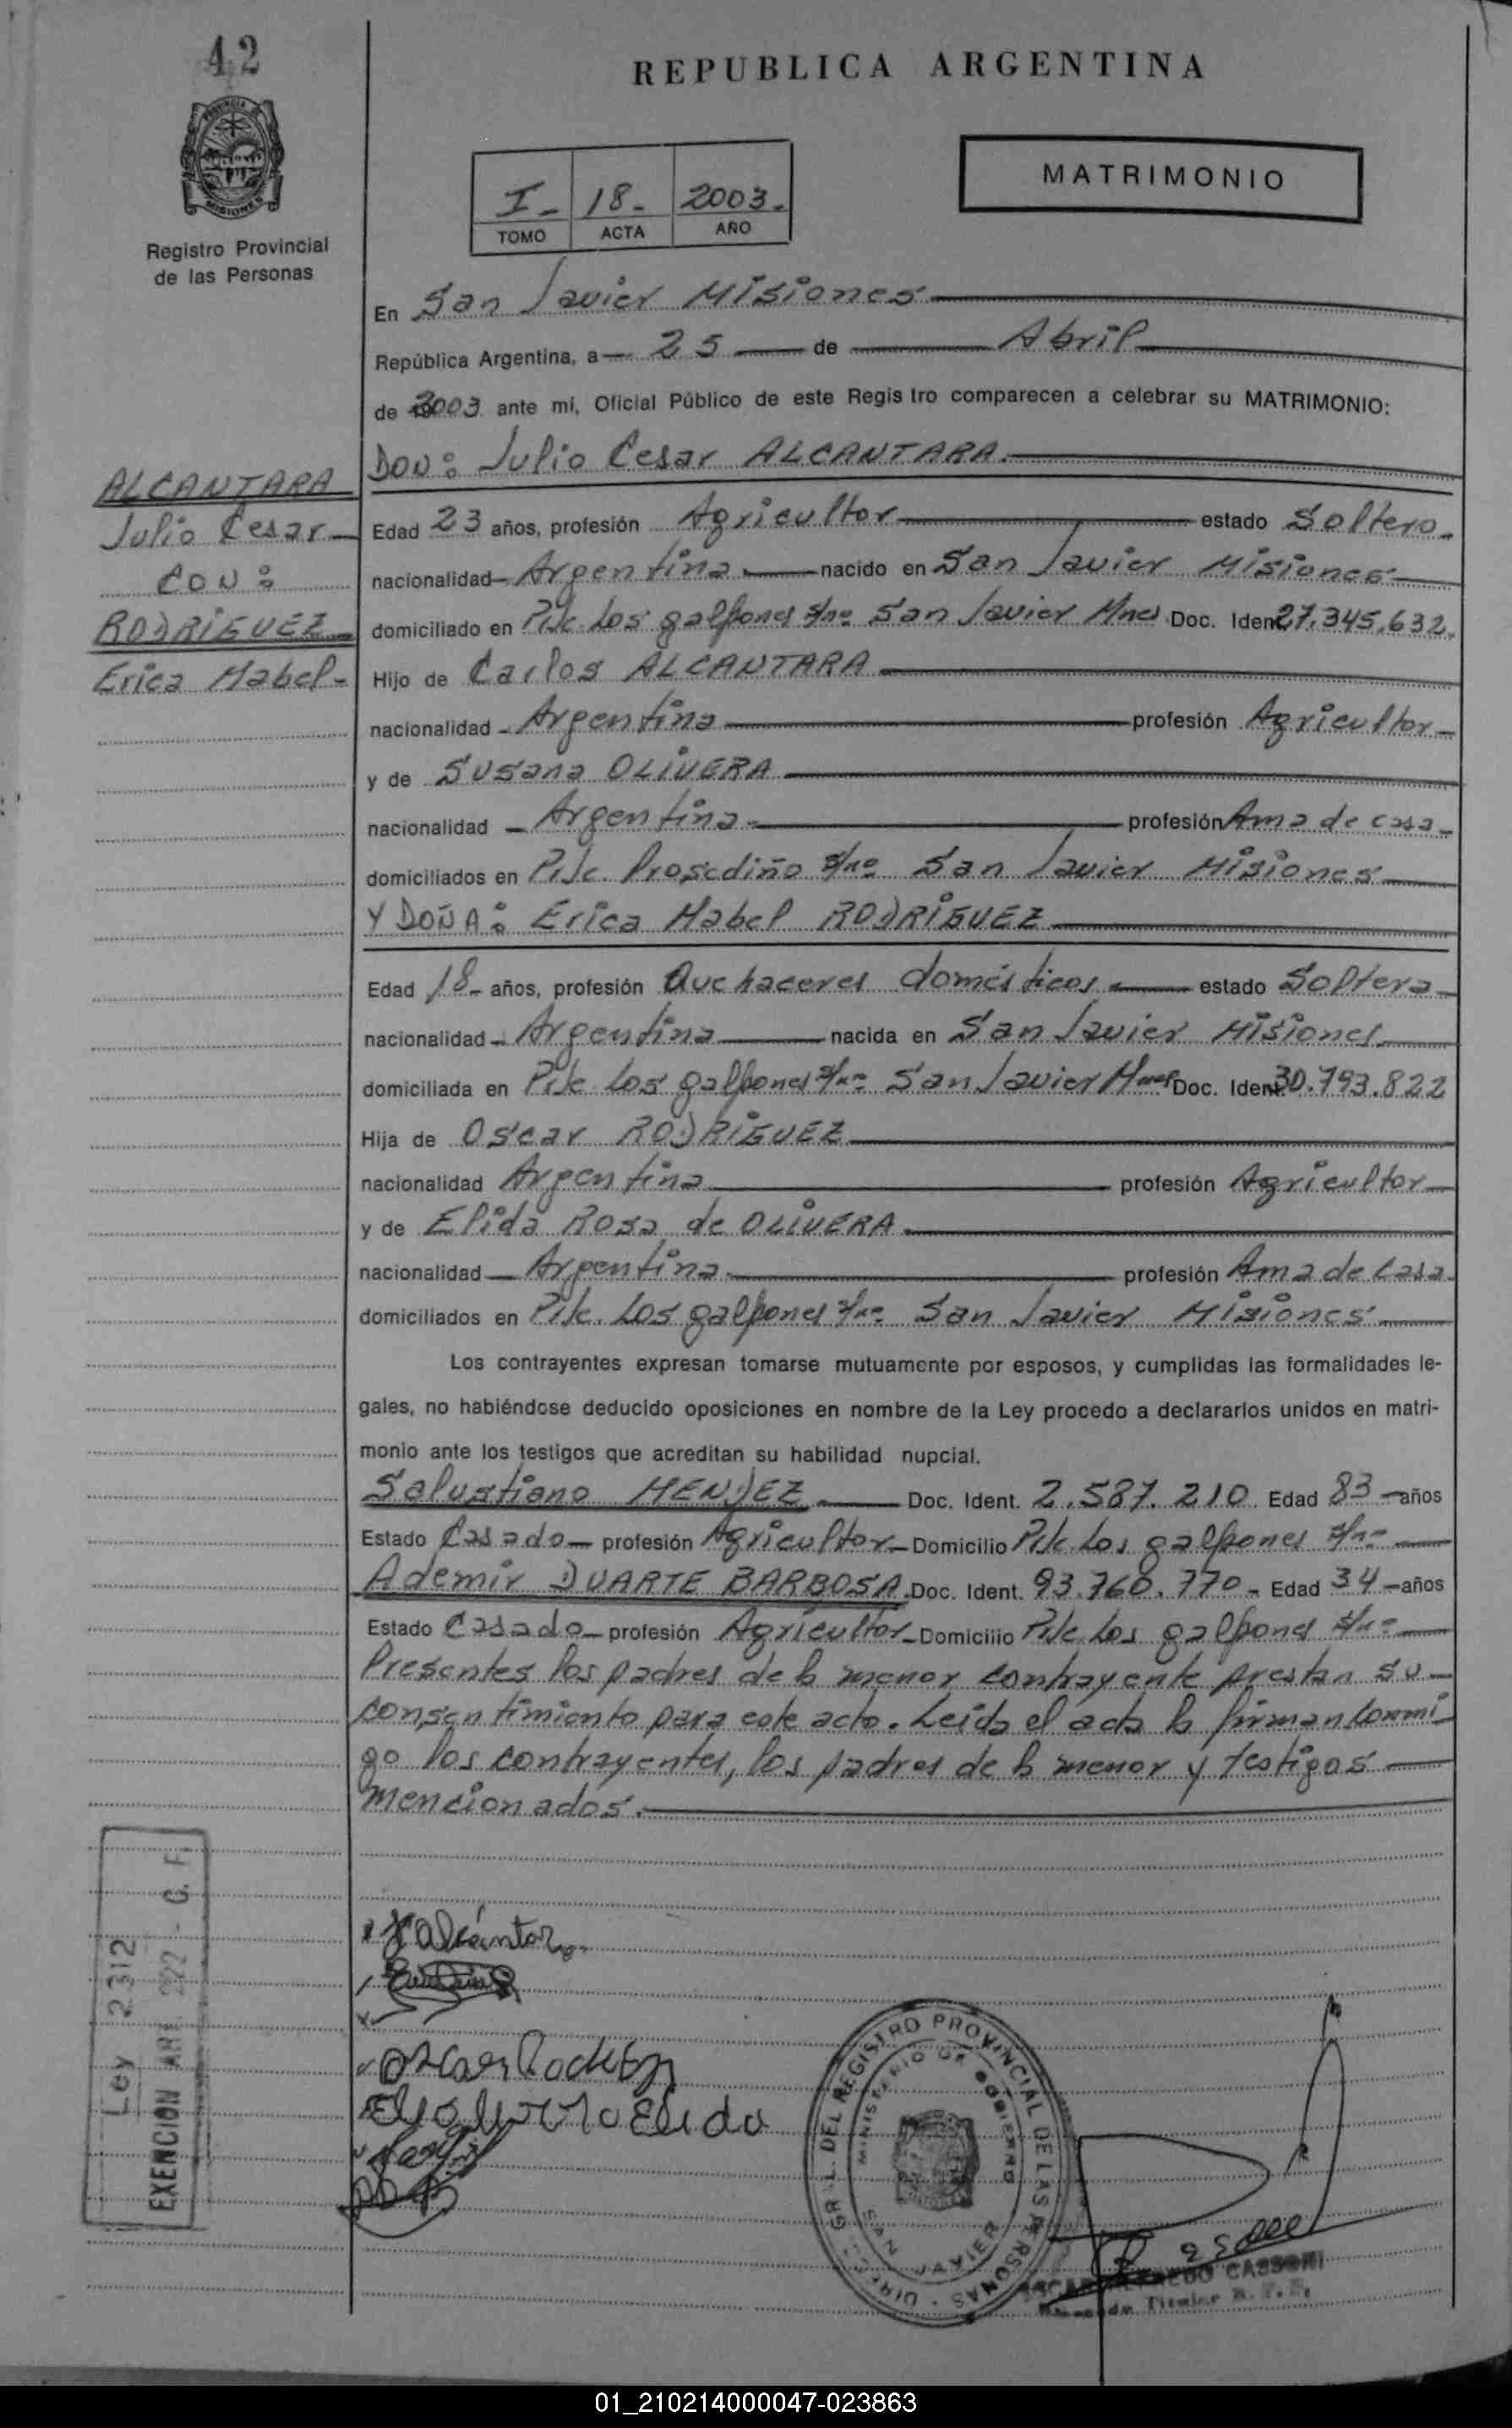 42
REPUBLICA ARGENTINA
MISIONES
Registro Provincial
de las Personas
I- 18- 2003.
TOMO ACTA AÑO
MATRIMONIO
En San Javier Misiones
República Argentina, a 25 de Abril
de 2003 ante mí, Oficial Público de este Regis tro comparecen a celebrar su MATRIMONIO:
DON: Julio Cesar ALCANTARA
ALCANTARA
Julio Cesar
CON:
RODRIGUEZ
Erica Mabel-
Edad 23 años, profesión Agricultor estado Soltero.
nacionalidad Argentina nacido en San Javier Misiones
domiciliado en Pje Los galpones s/nº San Javier Mnes Doc. Ident. 27.345.632.
Hijo de Carlos ALCANTARA
nacionalidad Argentina profesión Agricultor
y de Susana OLIVERA
nacionalidad Argentina profesión Ama de casa
domiciliados en Pje. s/nº San Javier Misiones
Y DOÑA: Erica Mabel RODRIGUEZ
Edad 18- años, profesión Que haceres domésticos estado Soltera
nacionalidad Argentina nacida en San Javier Misiones
domiciliada en Pje Los galpones s/nº San Javier Mnes Doc. Ident. 30.793.822
Hija de Oscar RODRIGUEZ
nacionalidad Argentina profesión Agricultor
y de Elida Rosa de OLIVERA
nacionalidad Argentina profesión Ama de casa
domiciliados en Pje. Los galpones s/nº San Javier Misiones
Los contrayentes expresan tomarse mutuamente por esposos, y cumplidas las formalidades le-
gales, no habiéndose deducido oposiciones en nombre de la Ley procedo a declararlos unidos en matri-
monio ante los testigos que acreditan su habilidad nupcial.
Salustiano MENDEZ Doc. Ident. 2.587.210 Edad 83 años
Estado Casado profesión Agricultor Domicilio Pje Los galpones s/nº
Ademir DUARTE BARBOSA Doc. Ident. 93.760.770 Edad 34 años
Estado Casado profesión Agricultor Domicilio Pje Los galpones s/nº
Presentes los padres de la menor contrayente prestan su
consentimiento para este acto. Leida el acta la firman conmi
go los contrayentes, los padres de la menor y testigos
mencionados.
Ley 2312
EXENCION ART. 222 - C. F.
DIREC. GRAL. DEL REGISTRO PROVINCIAL DE LAS PERSONAS
MINISTERIO DE GOBIERNO
SAN JAVIER
OSCAR ALFREDO CASSONI
01_210214000047-023863